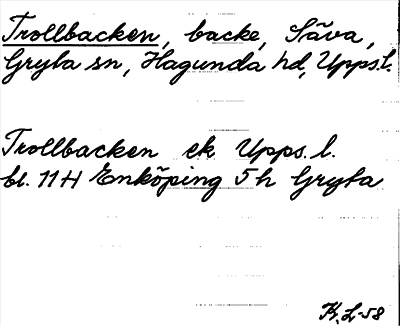 Trollbacken, backe, Säva,
Gryta sn, Hagunda hd, Upps.l.
Trollbacken ek Upps. l.
bl. 11 H Enköping 5 h Gryta
K. L-58